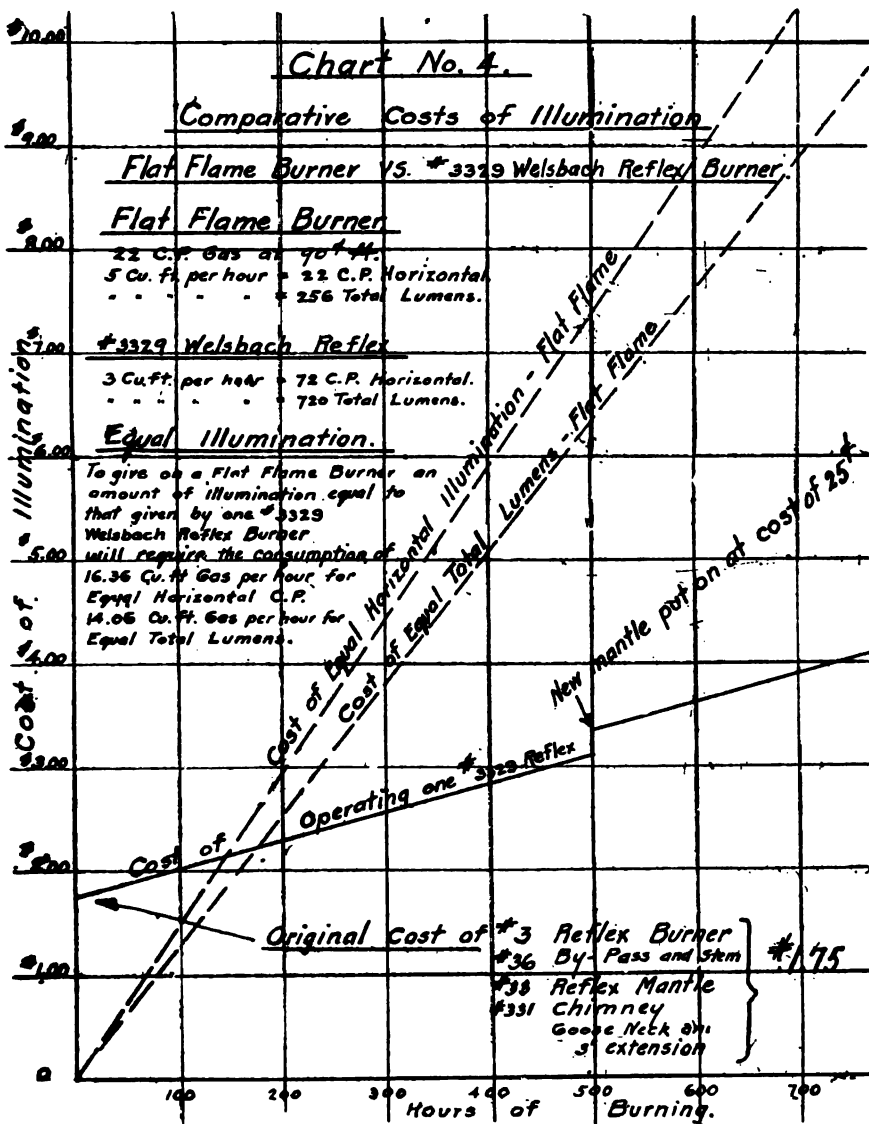 Chart No. 4.
Comparative Costs of Illumination
Flat Flame Burner VS. #3329 Welsbach Reflex Burner
Flat Flame Burner
22 C.P. Gas at 90¢ M.
5 Cu. ft. per hour = 22 C.P. Horizontal.
" " " " " = 256 Total Lumens.
#3329 Welsbach Reflex
3 Cu.ft. per hour = 72 C.P. Horizontal.
" " " " " = 720 Total Lumens.
Equal Illumination.
To give on a Flat Flame Burner an
amount of illumination equal to
that given by one #3329
Welsbach Reflex Burner
will require the consumption of
16.36 Cu.ft Gas per hour for
Equal Horizontal C.P.
14.06 Cu.ft. Gas per hour for
Equal Total Lumens.
Cost of Equal Horizontal Illumination - Flat Flame
Cost of Equal Total Lumens - Flat Flame
New mantle put on at cost of 25¢
Cost of Operating one #3329 Reflex
Original Cost of #3 Reflex Burner
#36 By-Pass and Stem
#38 Reflex Mantle
#331 Chimney
Goose Neck and
3" extension
$1.75
Cost of Illumination
$10.00
$9.00
$8.00
$7.00
$6.00
$5.00
$4.00
$3.00
$2.00
$1.00
0
100 200 300 400 500 600 700
Hours of Burning.